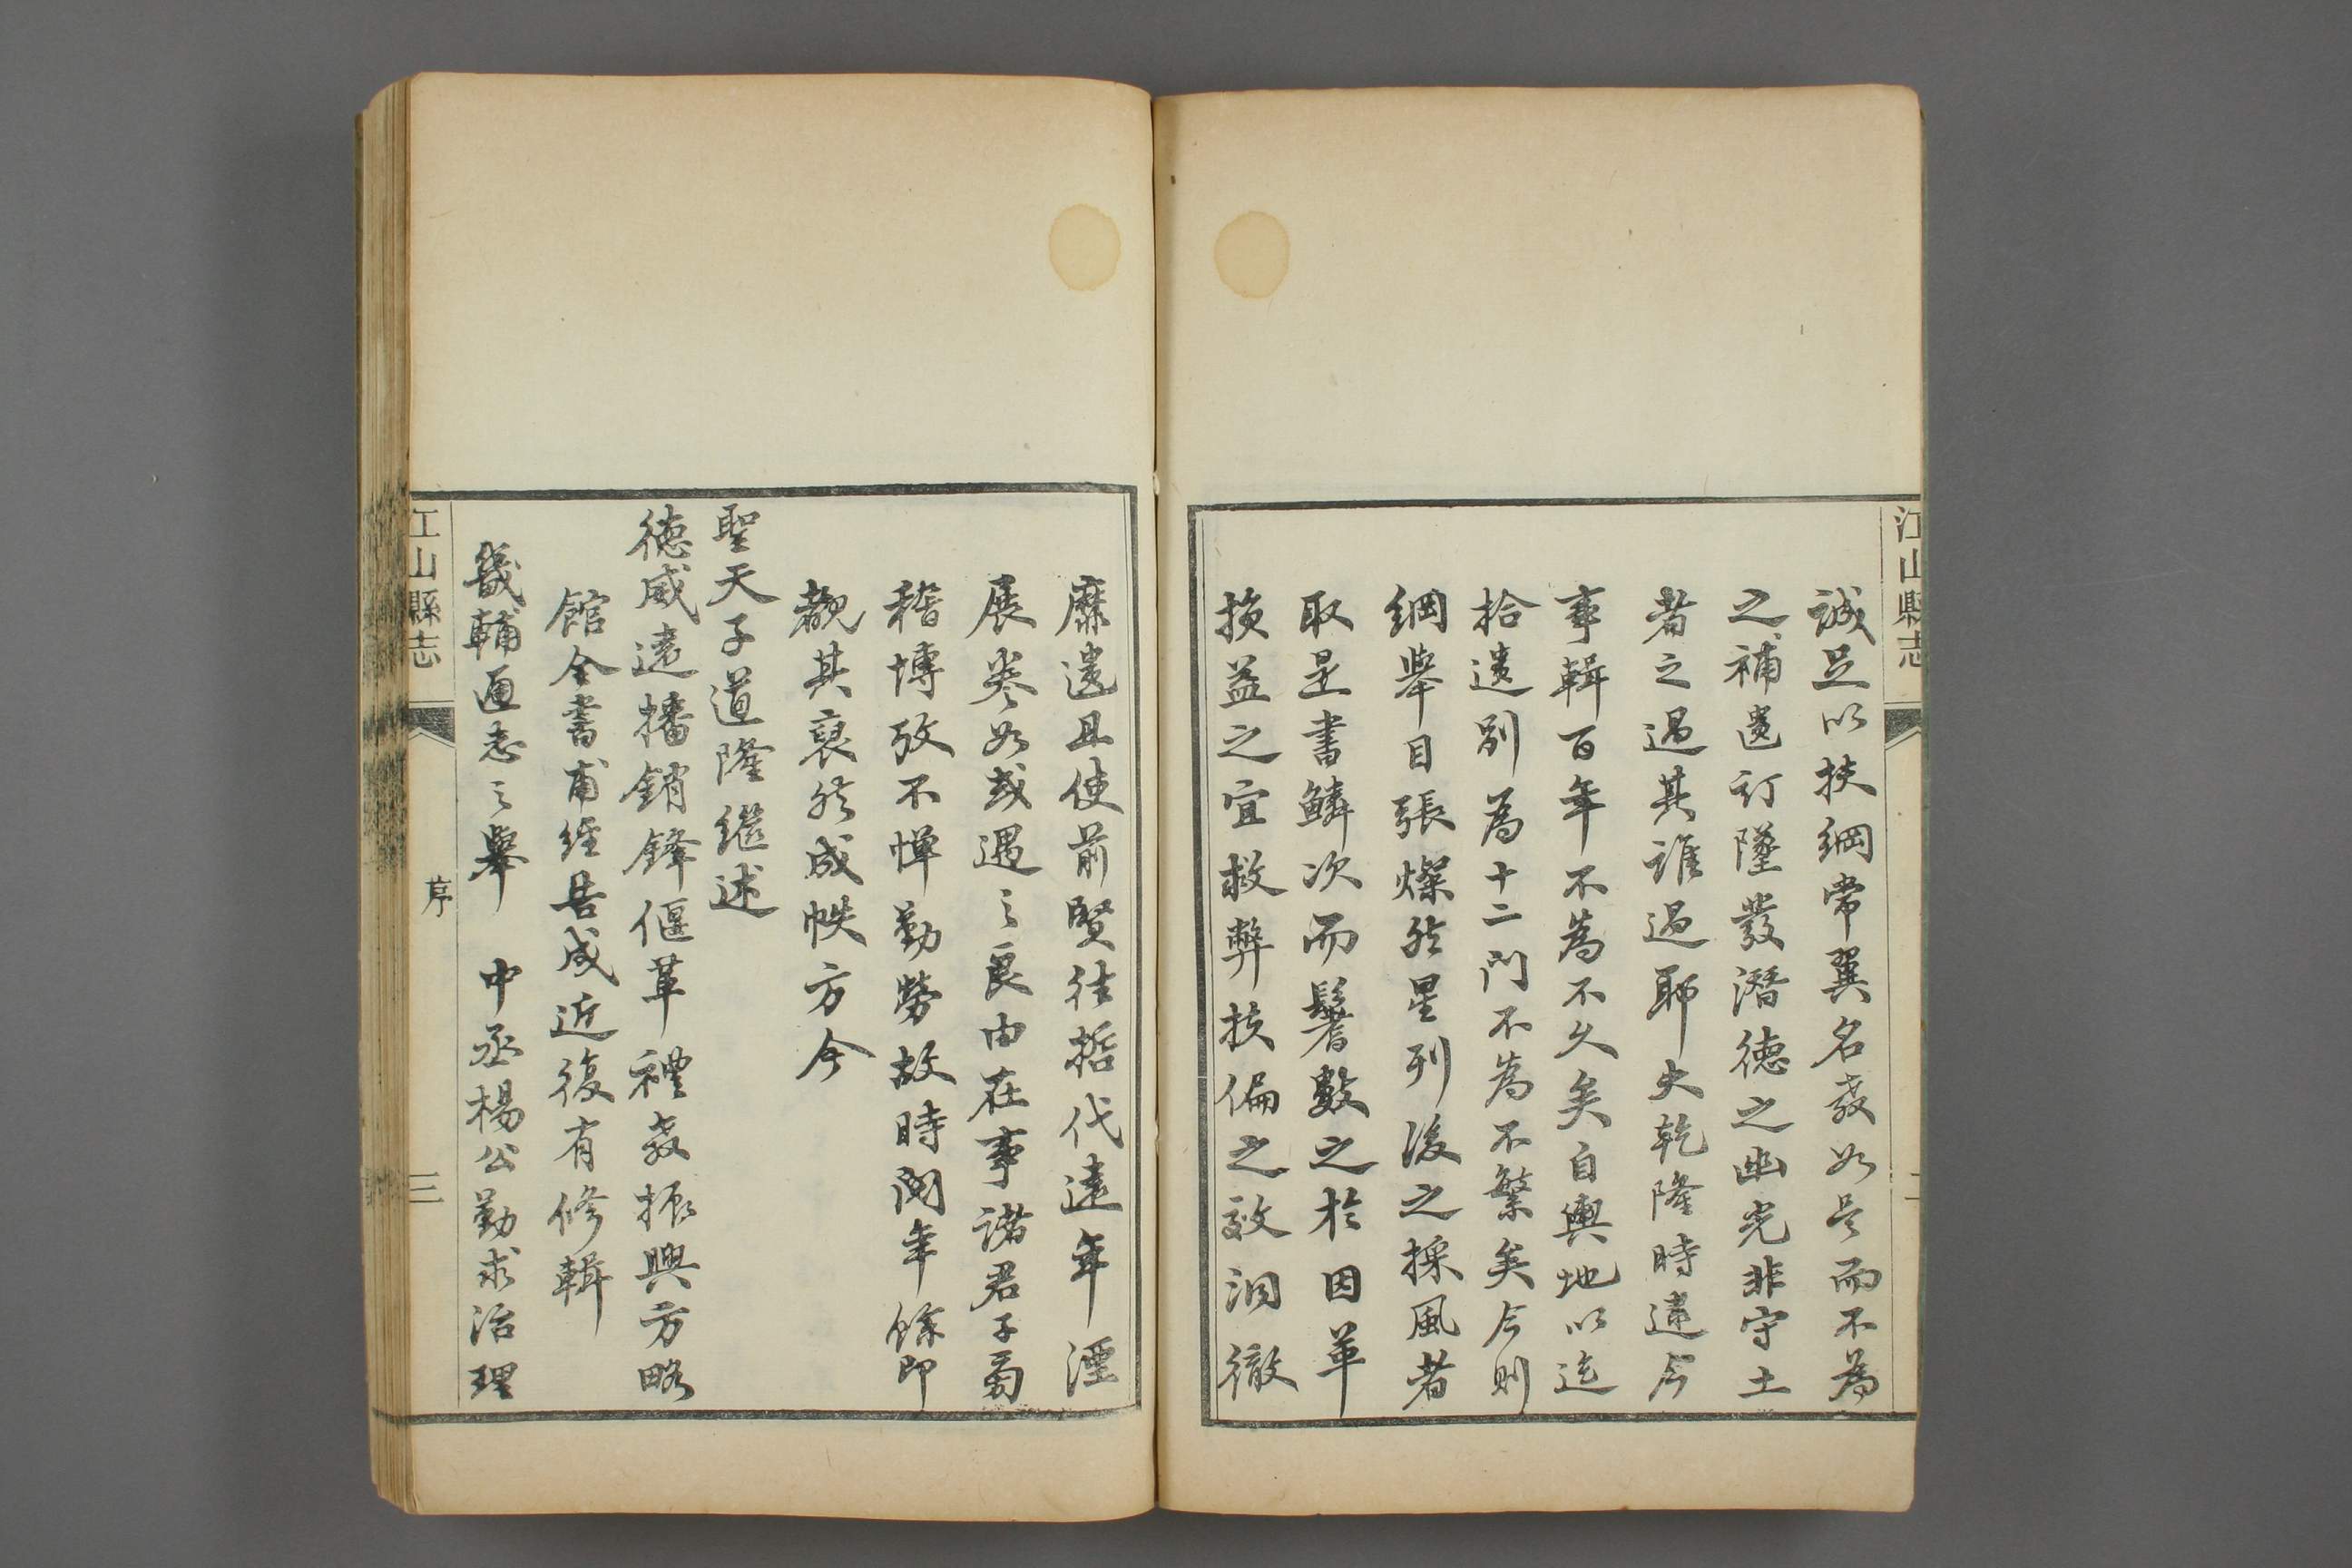 江山縣志
二
誠足以扶綱常翼名教如是而不為
之補遺訂墜發潛德之幽光非守土
者之過其誰過耶夫乾隆時遠今
事輯百年不為不久矣自輿地以迄
拾遺別為十二門不為不繁矣今則
綱舉目張燦然星列後之採風者
取是書鱗次而髻數之於因革
損益之宜救弊扶偏之效洞徹
靡遺且使前賢往哲代遠年湮
展卷如或遇之良由在事諸君子蒐
稽博攷不憚勤勞故時閱年餘即
覩其裒然成帙方今
聖天子道隆繼述
德威遠播銷鋒偃革禮教振興方略
館全書甫經告成近復有修輯
畿輔通志之舉 中丞楊公勤求治理
江山縣志
序
三